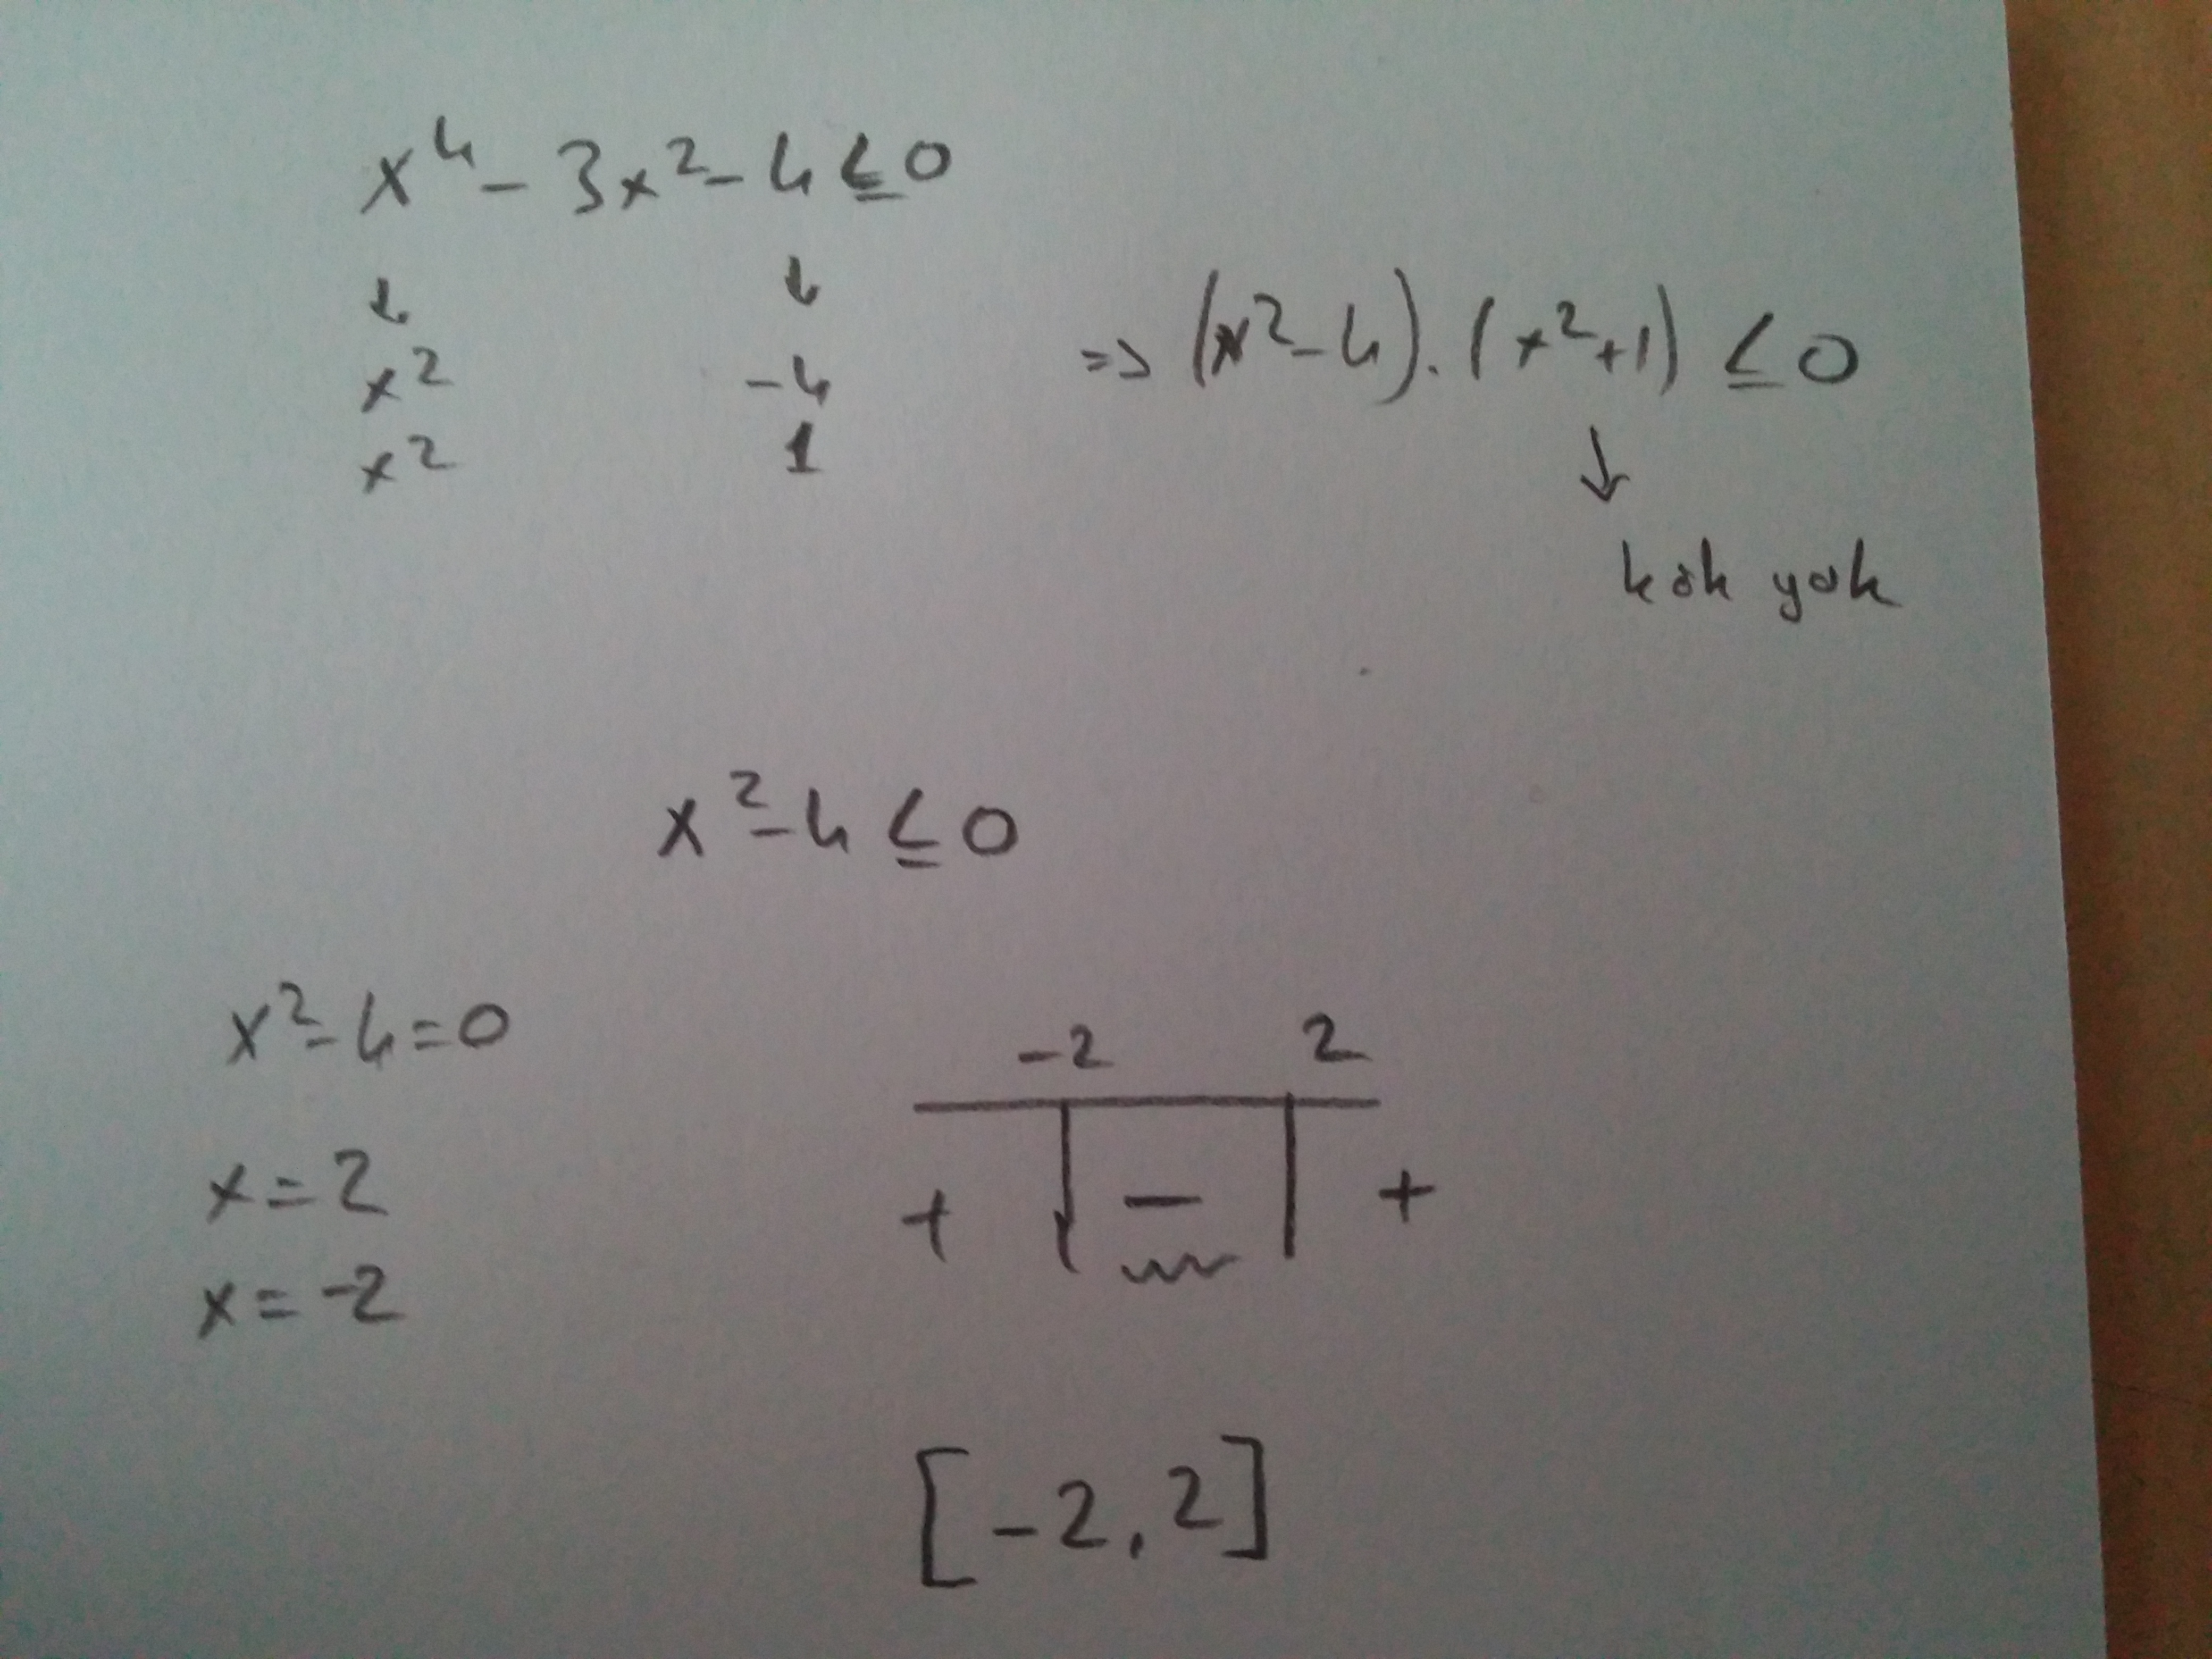 x⁴ - 3x² - 4 ≤ 0
↓ ↓
x² -4
x² 1
=> (x² - 4) . (x² + 1) ≤ 0
↓
kök yok
x² - 4 ≤ 0
x² - 4 = 0
x = 2
x = -2
-2 2
+ - +
[-2, 2]